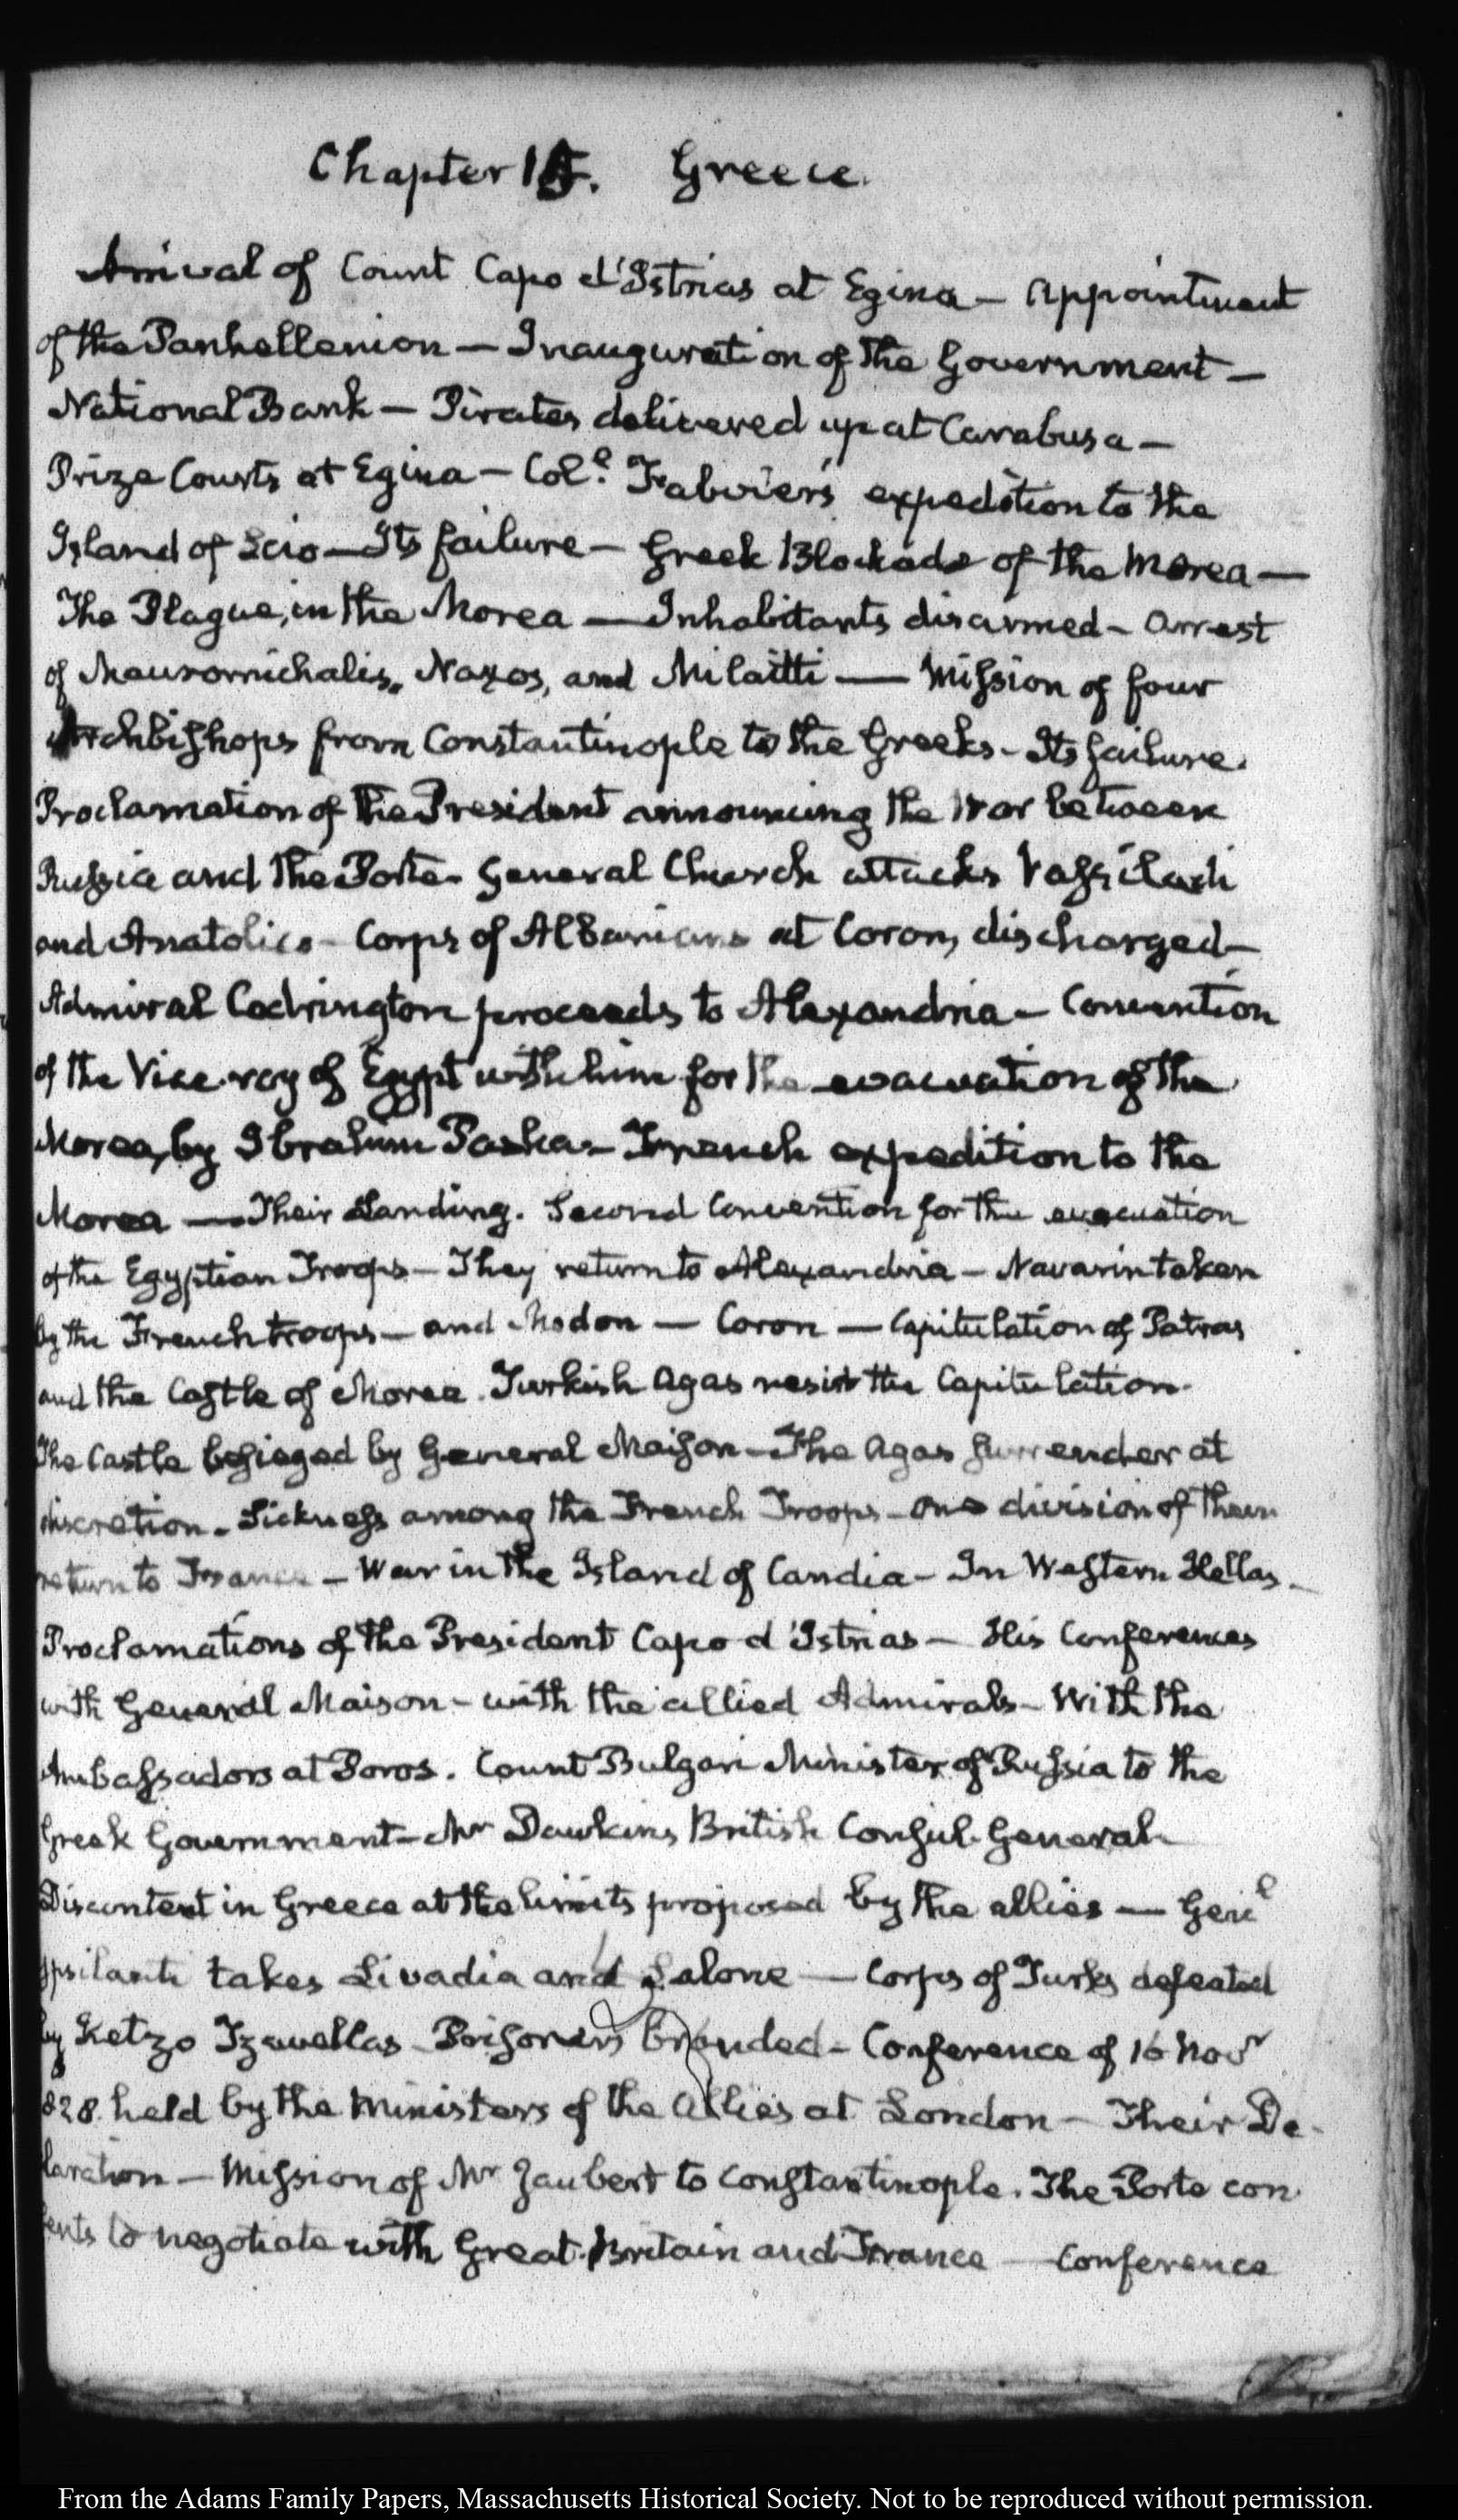 Chapter 15. Greece.
Arrival of Count Capo d'Istrias at Egina — Appointment
of the Panhellenion — Inauguration of the Government —
National Bank — Pirates delivered up at Carabusa —
Prize Courts at Egina — Coll. Fabvier's expedition to the
Island of Scio — Its failure — Greek Blockade of the Morea —
The Plague, in the Morea — Inhabitants disarmed — Arrest
of Mauromichalis, Naxos, and Milaitti — Mission of four
Archbishops from Constantinople to the Greeks — Its failure.
Proclamation of the President announcing the War between
Russia and the Porte — General Church attacks Vassiladi
and Anatolico — Corps of Albanians at Coron, discharged —
Admiral Codrington proceeds to Alexandria — Convention
of the Vice-roy of Egypt with him for the evacuation of the
Morea, by Ibrahim Pasha — French expedition to the
Morea — Their Landing. Second Convention for the evacuation
of the Egyptian Troops — They return to Alexandria — Navarin taken
by the French troops — and Modon — Coron — Capitulation of Patras
and the Castle of Morea. Turkish Agas resist the Capitulation.
The Castle besieged by General Maison — The Agas surrender at
discretion. Sickness among the French Troops — One division of them
return to France — War in the Island of Candia — In Western Hellas —
Proclamations of the President Capo d'Istrias — His Conferences
with General Maison — with the allied Admirals — With the
Ambassadors at Poros. Count Bulgari Minister of Russia to the
Greek Government — Mr Dawkins British Consul-General
Discontent in Greece at the limits proposed by the allies — Genl
Ypsilanti takes Livadia and Salone — Corps of Turks defeated
by Ketzo Tzavellas Prisoners branded — Conference of 16 Novr
828. held by the Ministers of the Allies at London — Their De-
laration — Mission of Mr Jaubert to Constantinople. The Porte con
sents to negotiate with Great-Britain and France — Conference
From the Adams Family Papers, Massachusetts Historical Society. Not to be reproduced without permission.